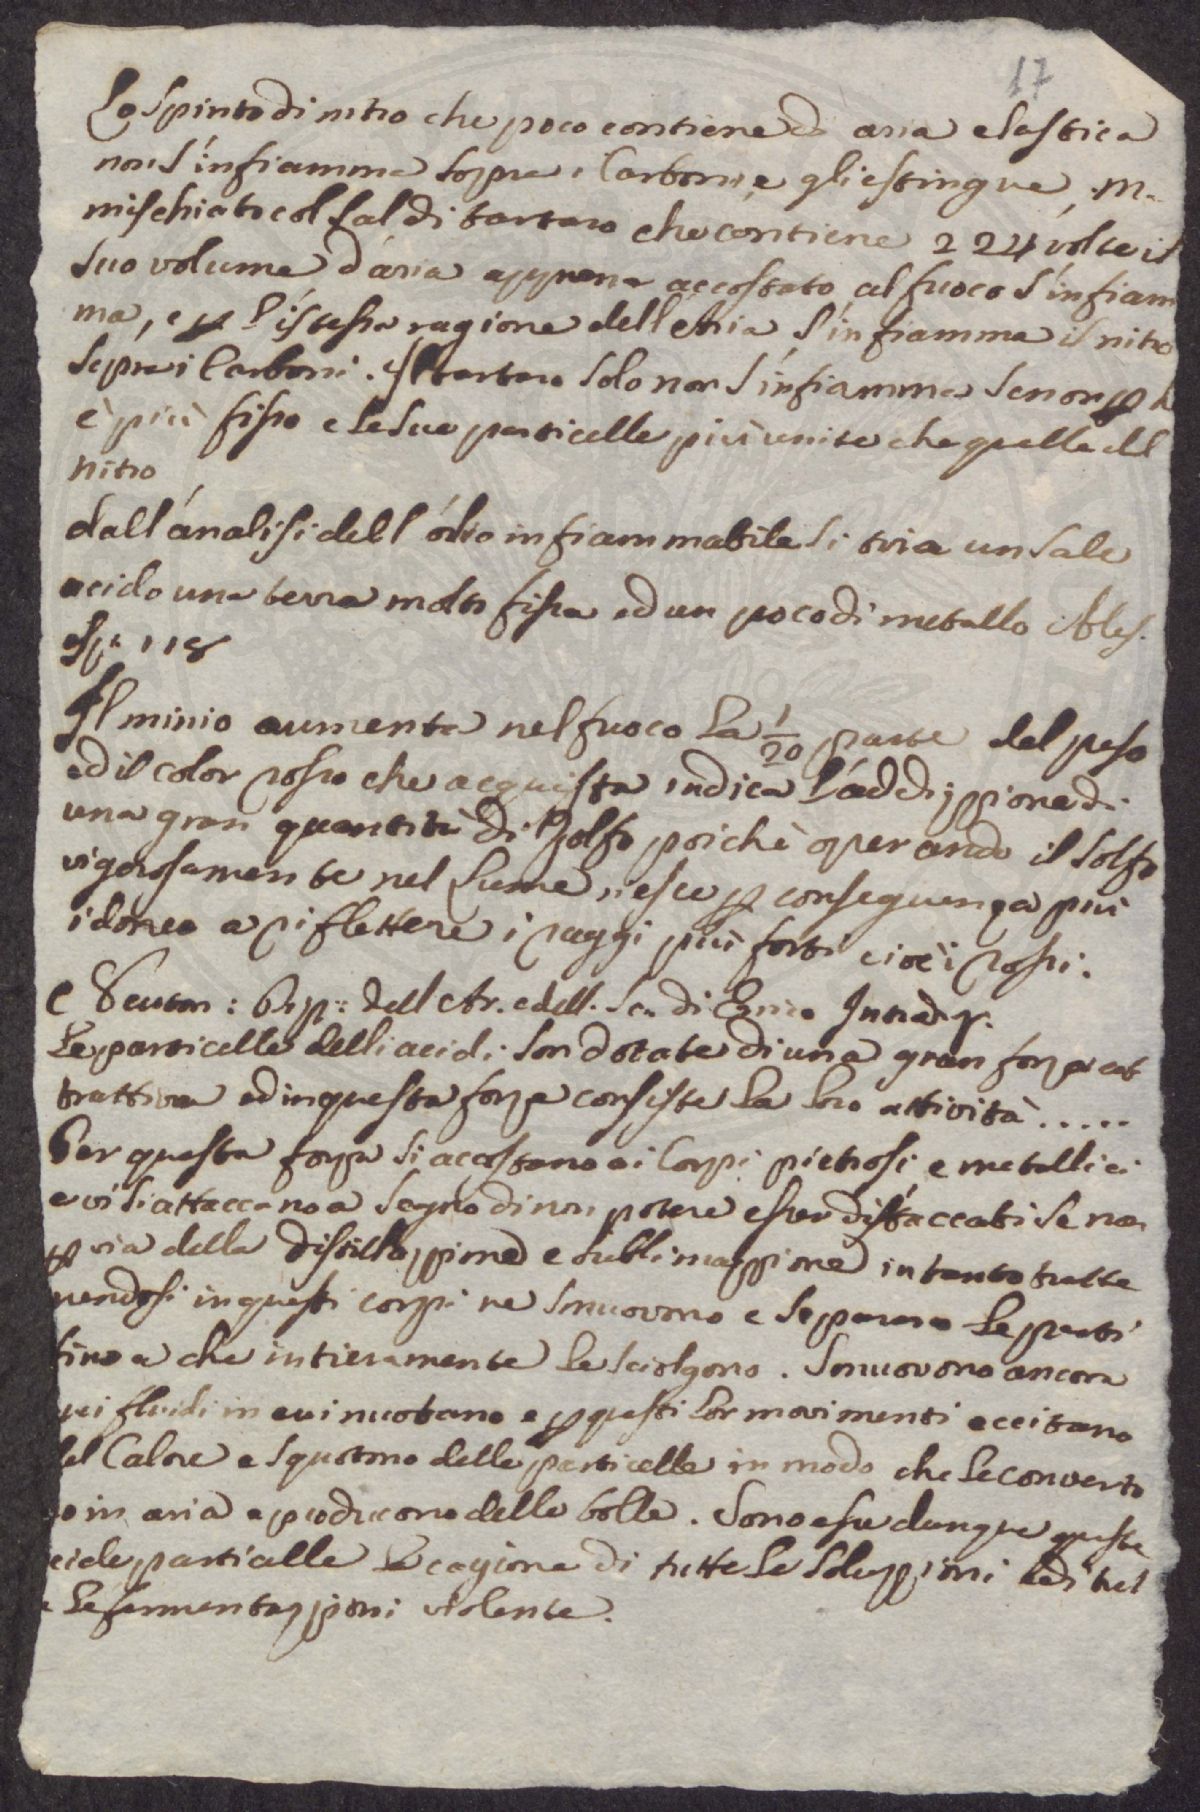 17
Lo spirito di nitro che poco contiene di aria elastica
non s'infiamma sopra i Carboni e gli estingue, m
mischiato col sal di tartaro che contiene 224 volte il
suo volume d'aria appena accostato al fuoco s'infiam
ma, e ꝑ l'istessa ragione dell'aria s'infiamma il nitro
sopra i Carboni. Il tartaro solo non s'infiamma se non ꝑ
è più fisso e le sue particelle più unite che quelle del
nitro
dall'analisi dell'olio infiammabile si tria un sale
acido una terra molto fissa ed un poco di metallo Ales.
118
Il minio aumenta nel fuoco la 1/20 parte del peso
ed il color rosso che acquista indica l'addizzione di
una gran quantità di Zolfo poichè operando il solfo
vigorosamente nel lume, riesce ꝑ conseguenza più
idoneo a riflettere i raggi più forti cioè i rossi.
dell Ar. e dell. di
Le particelle delli acidi son dotate di una gran forza at
trattiva ed in questa forza consiste la loro attività.....
Per questa forza si accostano ai Corpi pietrosi, e metallici
e vi si attaccano a segno di non potere esser distaccati se non
ꝑ via della distillazzione e sublimazzione intanto tratte
nendosi in questi corpi ne smuovono e separano le parti
fino a che intieramente le sciolgono. Smuovono ancora
uei fluidi in cui nuotano e ꝑ questi lor movimenti eccitano
el Calore e squotono delle particelle in modo che le converto
o in aria e producono delle bolle. Sono esse dunque queste
cide particelle la cagione di tutte le soluzzioni e di tut
e le fermentazzioni violente.